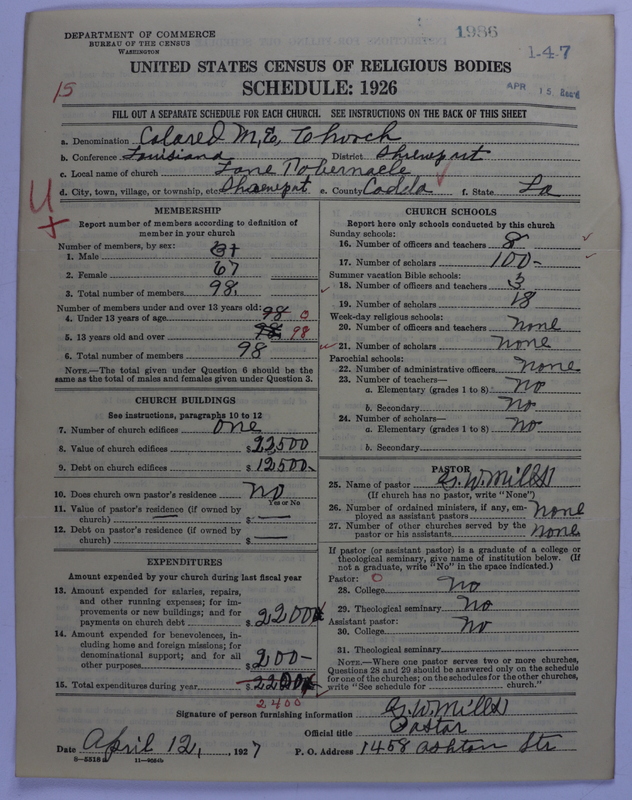 DEPARTMENT OF COMMERCE
BUREAU OF THE CENSUS
WASHINGTON
1936
1-4-7
15
APR 15
UNITED STATES CENSUS OF RELIGIOUS BODIES
SCHEDULE: 1926
FILL OUT A SEPARATE SCHEDULE FOR EACH CHURCH. SEE INSTRUCTIONS ON THE BACK OF THIS SHEET
a. Denomination Colored M, E, Church
b. Conference Louisiana District Shreveport
c. Local name of church Lane Tobernacle
d. City, town, village, or township, etc. Shreveport e. County Caddo f. State La
MEMBERSHIP
Report number of members according to definition of
member in your church
Number of members, by sex:
1. Male 31
2. Female 67
3. Total number of members 98
Number of members under and over 13 years old:
4. Under 13 years of age 98 0
5. 13 years old and over 98 98
6. Total number of members 98
NOTE.—The total given under Question 6 should be the
same as the total of males and females given under Question 3.
CHURCH BUILDINGS
See instructions, paragraphs 10 to 12
7. Number of church edifices one
8. Value of church edifices $22500
9. Debt on church edifices $12500-
10. Does church own pastor's residence No
Yes or No
11. Value of pastor's residence (if owned by
church) $ —
12. Debt on pastor's residence (if owned by
church) $ —
EXPENDITURES
Amount expended by your church during last fiscal year
13. Amount expended for salaries, repairs,
and other running expenses; for im-
provements or new buildings; and for
payments on church debt $2200
14. Amount expended for benevolences, in-
cluding home and foreign missions; for
denominational support; and for all
other purposes $200-
15. Total expenditures during year $2200
2400
CHURCH SCHOOLS
Report here only schools conducted by this church
Sunday schools:
16. Number of officers and teachers 8
17. Number of scholars 100-
Summer vacation Bible schools:
18. Number of officers and teachers 3
19. Number of scholars 18
Week-day religious schools:
20. Number of officers and teachers None
21. Number of scholars None
Parochial schools:
22. Number of administrative officers None
23. Number of teachers—
a. Elementary (grades 1 to 8) No
b. Secondary No
24. Number of scholars—
a. Elementary (grades 1 to 8) No
b. Secondary
PASTOR
25. Name of pastor G. W. Mills
(If church has no pastor, write "None")
26. Number of ordained ministers, if any, em-
ployed as assistant pastors None
27. Number of other churches served by the
pastor or his assistants None
If pastor (or assistant pastor) is a graduate of a college or
theological seminary, give name of institution below. (If
not a graduate, write "No" in the space indicated.)
Pastor: 0
28. College No
29. Theological seminary No
Assistant pastor:
30. College No
31. Theological seminary
NOTE.—Where one pastor serves two or more churches,
Questions 28 and 29 should be answered only on the schedule
for one of the churches; on the schedules for the other churches,
write "See schedule for church."
Signature of person furnishing information G. W. Mills
Official title Pastor
Date April 12, 1927 P. O. Address 1458 Ashton Str
8—5516 a 11—9054b